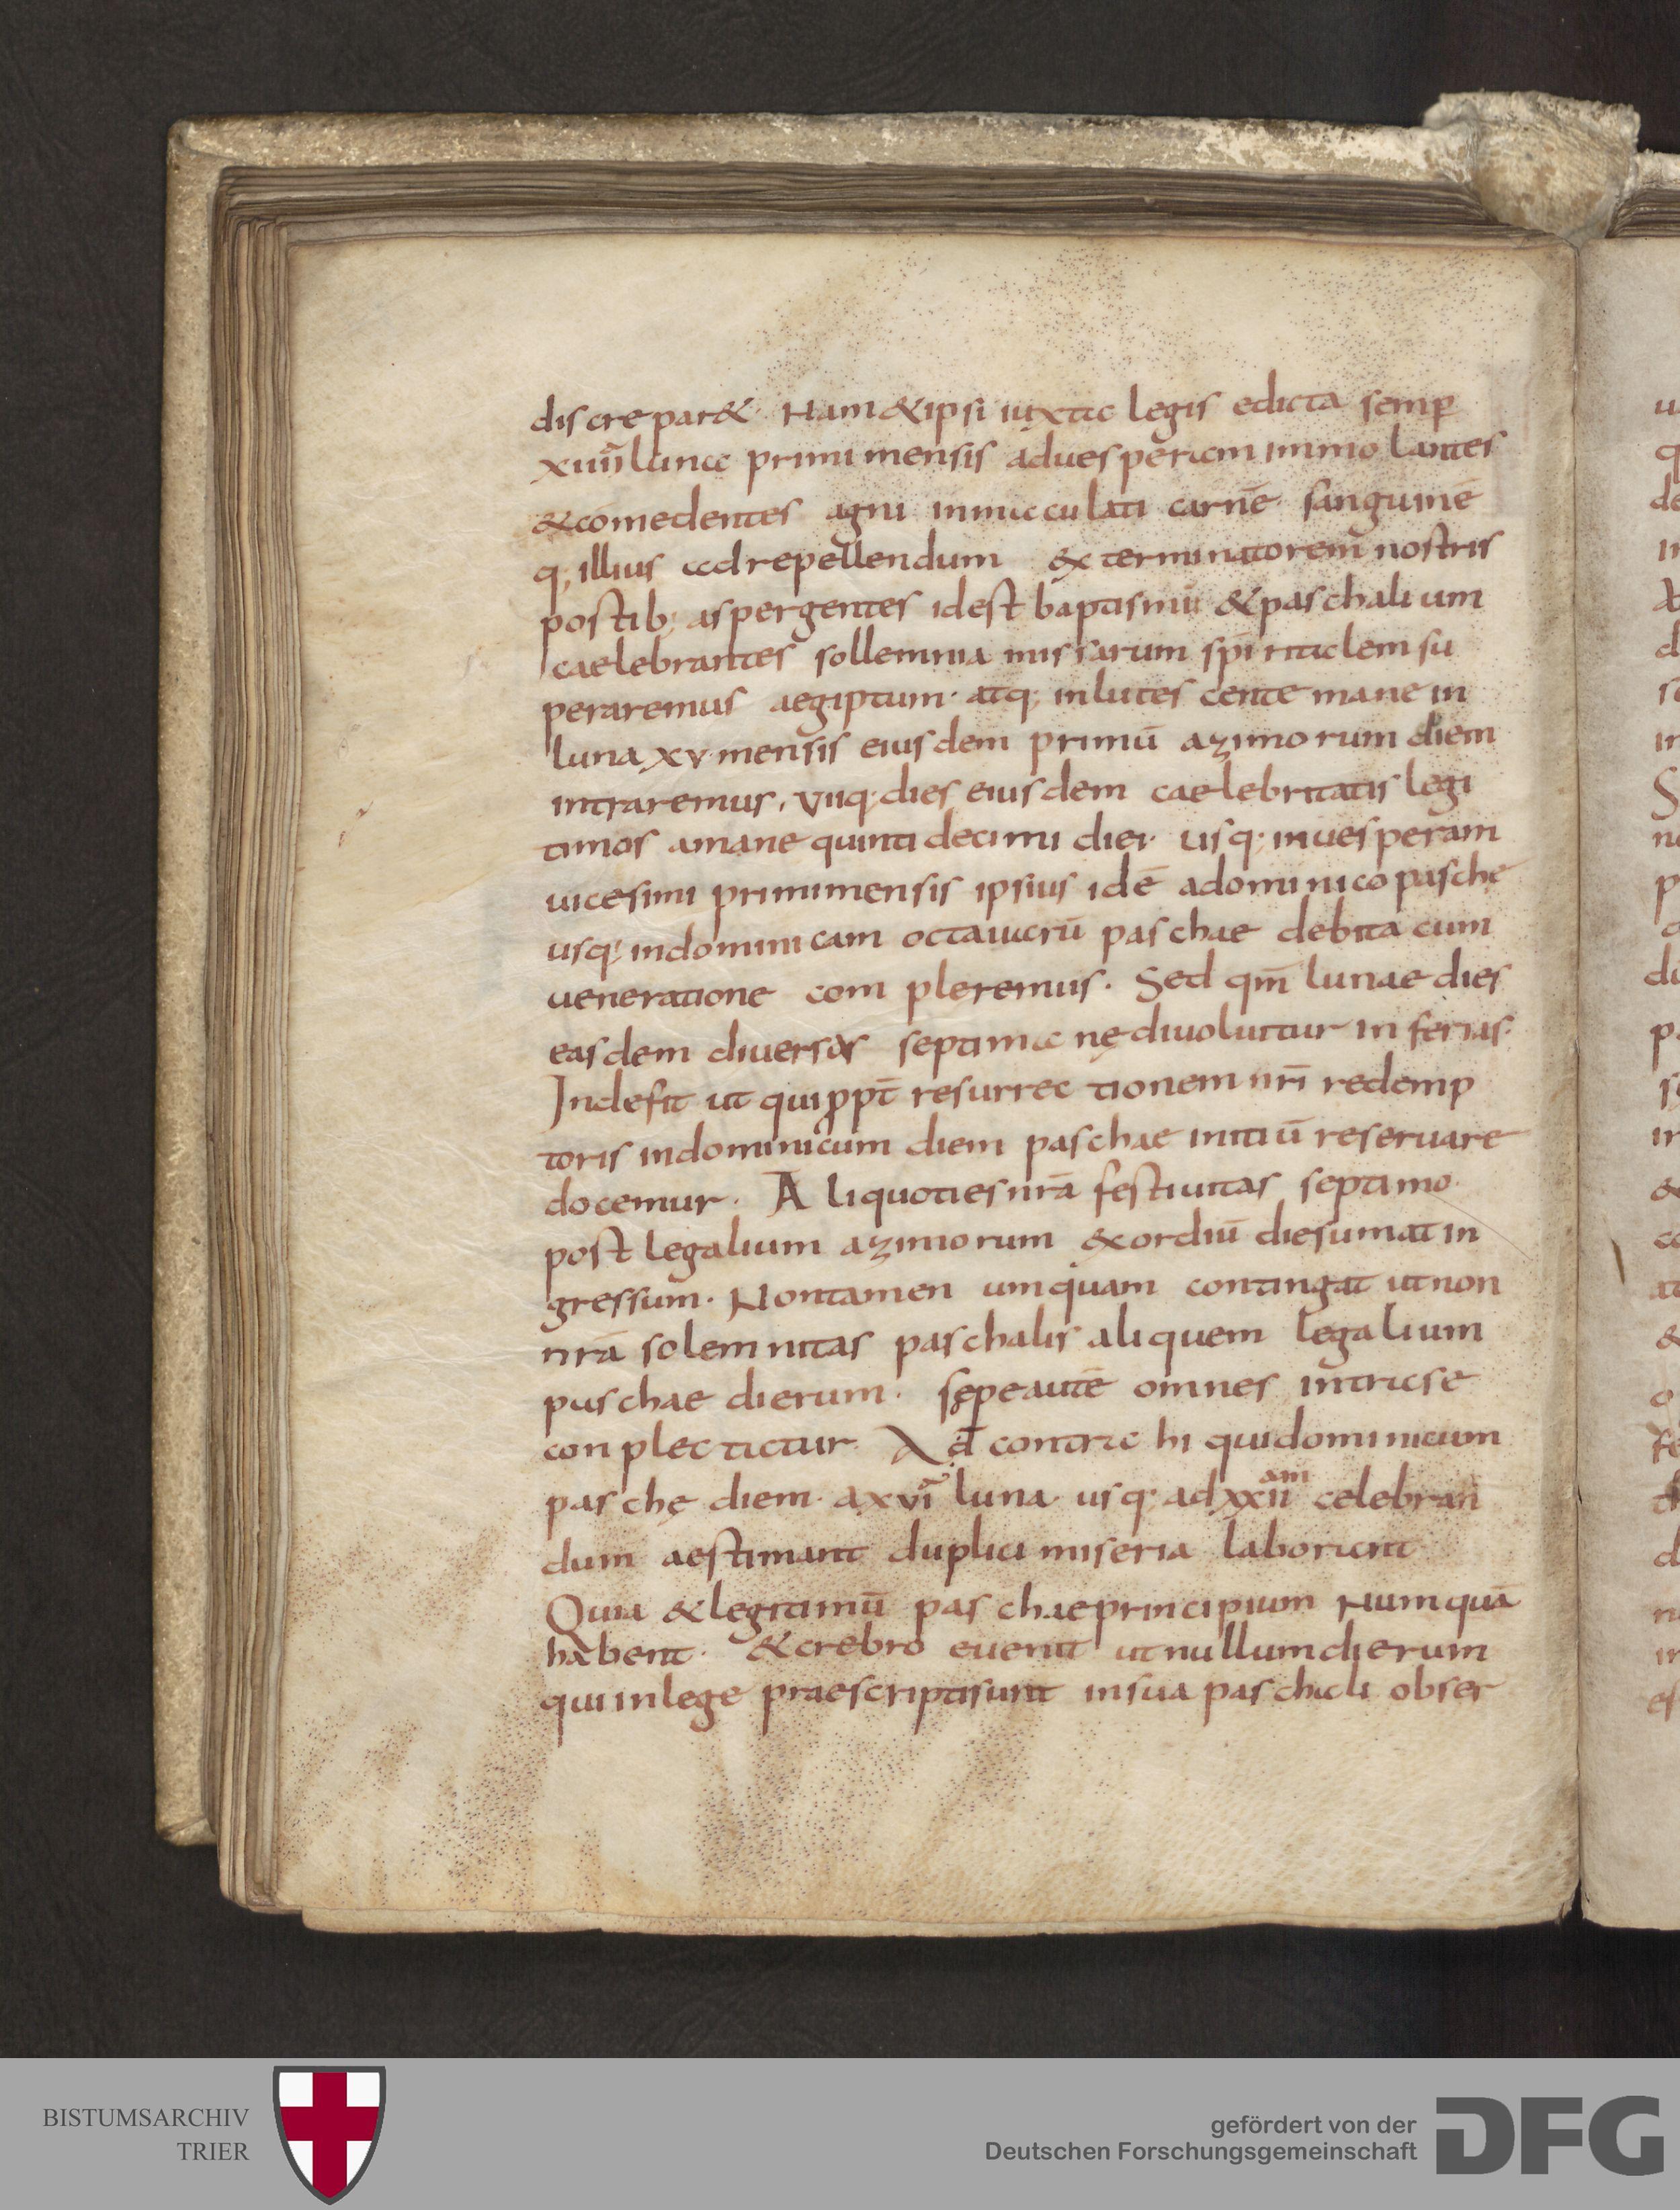 discrepar& Nam & ipsi iuxta legis edicta semp̄
xiiii luna primi mensis ad uesperam immolantes
& comedentes agni inmaculati carnē sanguinē
q; illius ad repellendum exterminatorem nostris
postib; aspergentes id est baptismū & paschalium
caelebrantes sollemnia missarum spiritalem su
peraremus aegiptum· atq; inlucescente mane in
luna xv mensis eiusdem primū azimorum diem
intraremus, viiq; dies eiusdem caelebritatis legi
timos amane quinti decimi diei· usq; in uesperam
uicesimi primi mensis ipsius idē a dominico paschę
usq; in dominicam octauarū paschae debita cum
ueneratione compleremus. Sed qm̄ lunae dies
easdem diuersas septimanę diuoluitur in ferias·
Inde fit ut qui ppt̄ resurrectionem nr̄i redemp
toris in dominicum diem paschae initiū reseruare
docemur. Aliquoties nr̄a festiuitas septimo
post legalium azimorum exordiū die sumat in
gressum. Non tamen umquam contingat ut non
nr̄a solemnitas paschalis aliquem legalium
paschae dierum. sępe autē omnes intra se
conplectatur. Ad contra hi qui dominicum
paschę diem· a xvi luna· usq; ad xxii am celebran
dum aestimant duplici miseria laborant
Quia & legitimū paschae principium Numquā
habent· & crebro euenit ut nullum dierum
qui in lege praescripti sunt in sua paschali obser
BISTUMSARCHIV
TRIER
gefördert von der
Deutschen Forschungsgemeinschaft
DFG